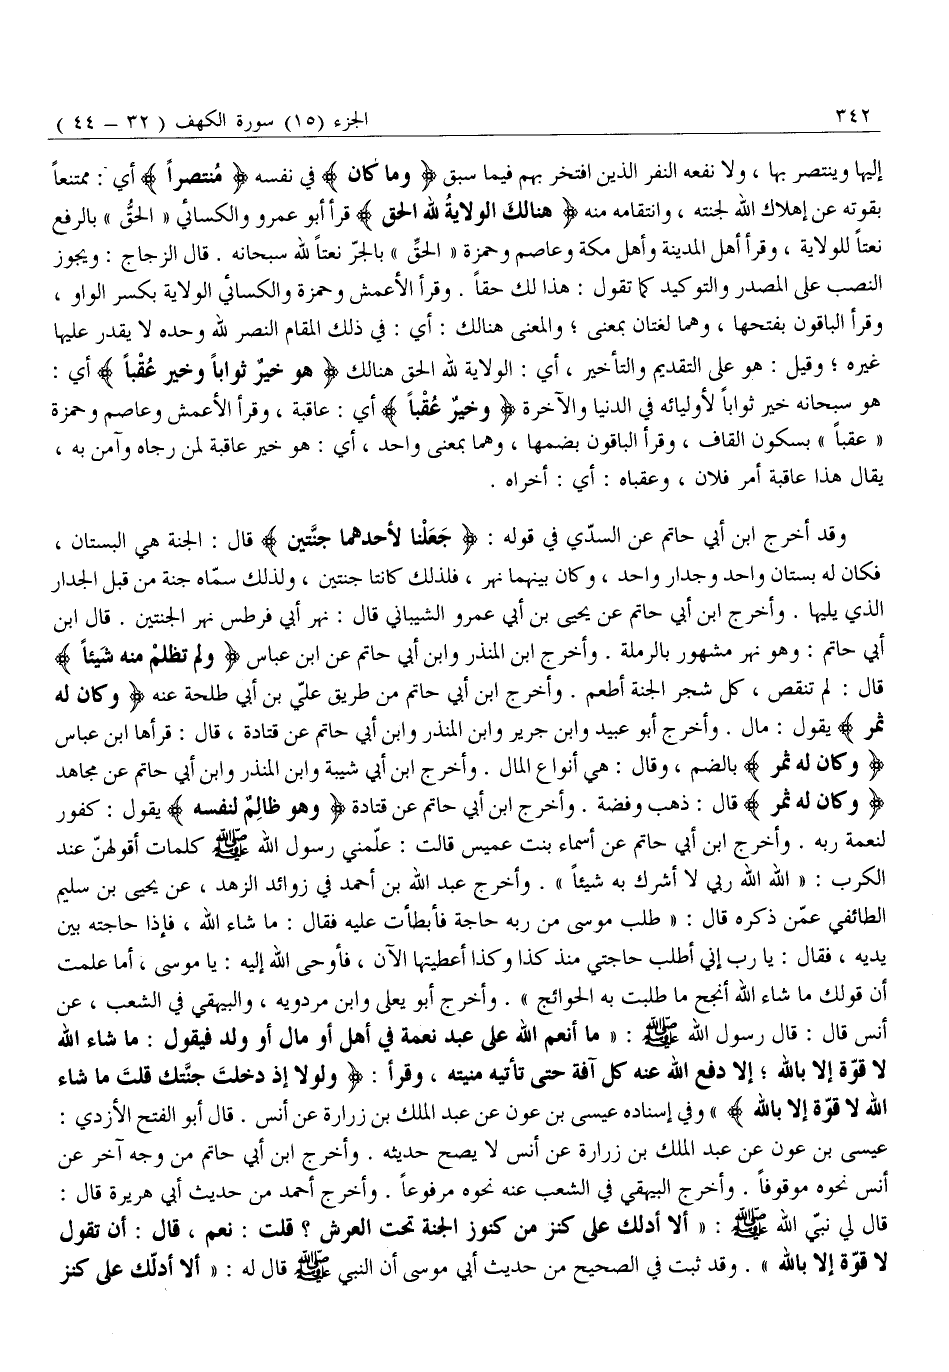 ٣٤٢
الجزء (١٥) سورة الكهف ( ٣٢ – ٤٤ )
إليها وينتصر بها ، ولا نفعه النفر الذين افتخر بهم فيما سبق ﴿ وما كان ﴾ في نفسه ﴿ مُنتصراً ﴾ أي : ممتنعاً
بقوته عن إهلاك الله لجنته ، وانتقامه منه ﴿ هنالك الولايةُ لله الحق ﴾ قرأ أبو عمرو والكسائي « الحقُّ » بالرفع
نعتاً للولاية ، وقرأ أهل المدينة وأهل مكة وعاصم وحمزة « الحقِّ » بالجرّ نعتاً لله سبحانه . قال الزجاج : ويجوز
النصب على المصدر والتوكيد كما تقول : هذا لك حقاً . وقرأ الأعمش وحمزة والكسائي الولاية بكسر الواو ،
وقرأ الباقون بفتحها ، وهما لغتان بمعنى ؛ والمعنى هنالك : أي : في ذلك المقام النصر لله وحده لا يقدر عليها
غيره ؛ وقيل : هو على التقديم والتأخير ، أي : الولاية لله الحق هنالك ﴿ هو خيرٌ ثواباً وخير عُقْباً ﴾ أي :
هو سبحانه خير ثواباً لأوليائه في الدنيا والآخرة ﴿ وخيرٌ عُقْباً ﴾ أي : عاقبة ، وقرأ الأعمش وعاصم وحمزة
« عقباً » بسكون القاف ، وقرأ الباقون بضمها ، وهما بمعنى واحد ، أي : هو خير عاقبة لمن رجاه وآمن به ،
يقال هذا عاقبة أمر فلان ، وعقباه : أي : أخراه .
وقد أخرج ابن أبي حاتم عن السدّي في قوله : ﴿ جَعَلْنا لأحدهما جنَّتين ﴾ قال : الجنة هي البستان ،
فكان له بستان واحد وجدار واحد ، وكان بينهما نهر ، فلذلك كانتا جنتين ، ولذلك سمّاه جنة من قبل الجدار
الذي يليها . وأخرج ابن أبي حاتم عن يحيى بن أبي عمرو الشيباني قال : نهر أبي فرطس نهر الجنتين . قال ابن
أبي حاتم : وهو نهر مشهور بالرملة . وأخرج ابن المنذر وابن أبي حاتم عن ابن عباس ﴿ ولم تظلمْ منه شَيئاً ﴾
قال : لم تنقص ، كل شجر الجنة أطعم . وأخرج ابن أبي حاتم من طريق عليّ بن أبي طلحة عنه ﴿ وكان له
ثمر ﴾ يقول : مال . وأخرج أبو عبيد وابن جرير وابن المنذر وابن أبي حاتم عن قتادة ، قال : قرأها ابن عباس
﴿ وكان له ثمر ﴾ بالضم ، وقال : هي أنواع المال . وأخرج ابن أبي شيبة وابن المنذر وابن أبي حاتم عن مجاهد
﴿ وكان له ثمر ﴾ قال : ذهب وفضة . وأخرج ابن أبي حاتم عن قتادة ﴿ وهو ظالِمٌ لنفسه ﴾ يقول : كفور
لنعمة ربه . وأخرج ابن أبي حاتم عن أسماء بنت عميس قالت : علّمني رسول الله ﷺ كلمات أقولهنّ عند
الكرب : « الله الله ربي لا أشرك به شيئاً » . وأخرج عبد الله بن أحمد في زوائد الزهد ، عن يحيى بن سليم
الطائفي عمّن ذكره قال : « طلب موسى من ربه حاجة فأبطأت عليه فقال : ما شاء الله ، فإذا حاجته بين
يديه ، فقال : يا رب إني أطلب حاجتي منذ كذا وكذا أعطيتها الآن ، فأوحى الله إليه : يا موسى ، أما علمت
أن قولك ما شاء الله أنجح ما طلبت به الحوائج » . وأخرج أبو يعلى وابن مردويه ، والبيهقي في الشعب ، عن
أنس قال : قال رسول الله ﷺ : « ما أنعم الله على عبد نعمة في أهل أو مال أو ولد فيقول : ما شاء الله
لا قوّة إلا بالله ؛ إلا دفع الله عنه كل آفة حتى تأتيه منيته ، وقرأ : ﴿ ولولا إذ دخلتَ جنَّتك قلتَ ما شاء
الله لا قوّة إلا بالله ﴾ » وفي إسناده عيسى بن عون عن عبد الملك بن زرارة عن أنس . قال أبو الفتح الأزدي :
عيسى بن عون عن عبد الملك بن زرارة عن أنس لا يصح حديثه . وأخرج ابن أبي حاتم من وجه آخر عن
أنس نحوه موقوفاً . وأخرج البيهقي في الشعب عنه نحوه مرفوعاً . وأخرج أحمد من حديث أبي هريرة قال :
قال لي نبيّ الله ﷺ : « ألا أدلك على كنز من كنوز الجنة تحت العرش ؟ قلت : نعم ، قال : أن تقول
لا قوّة إلا بالله » . وقد ثبت في الصحيح من حديث أبي موسى أن النبي ﷺ قال له : « ألا أدلّك على كنز